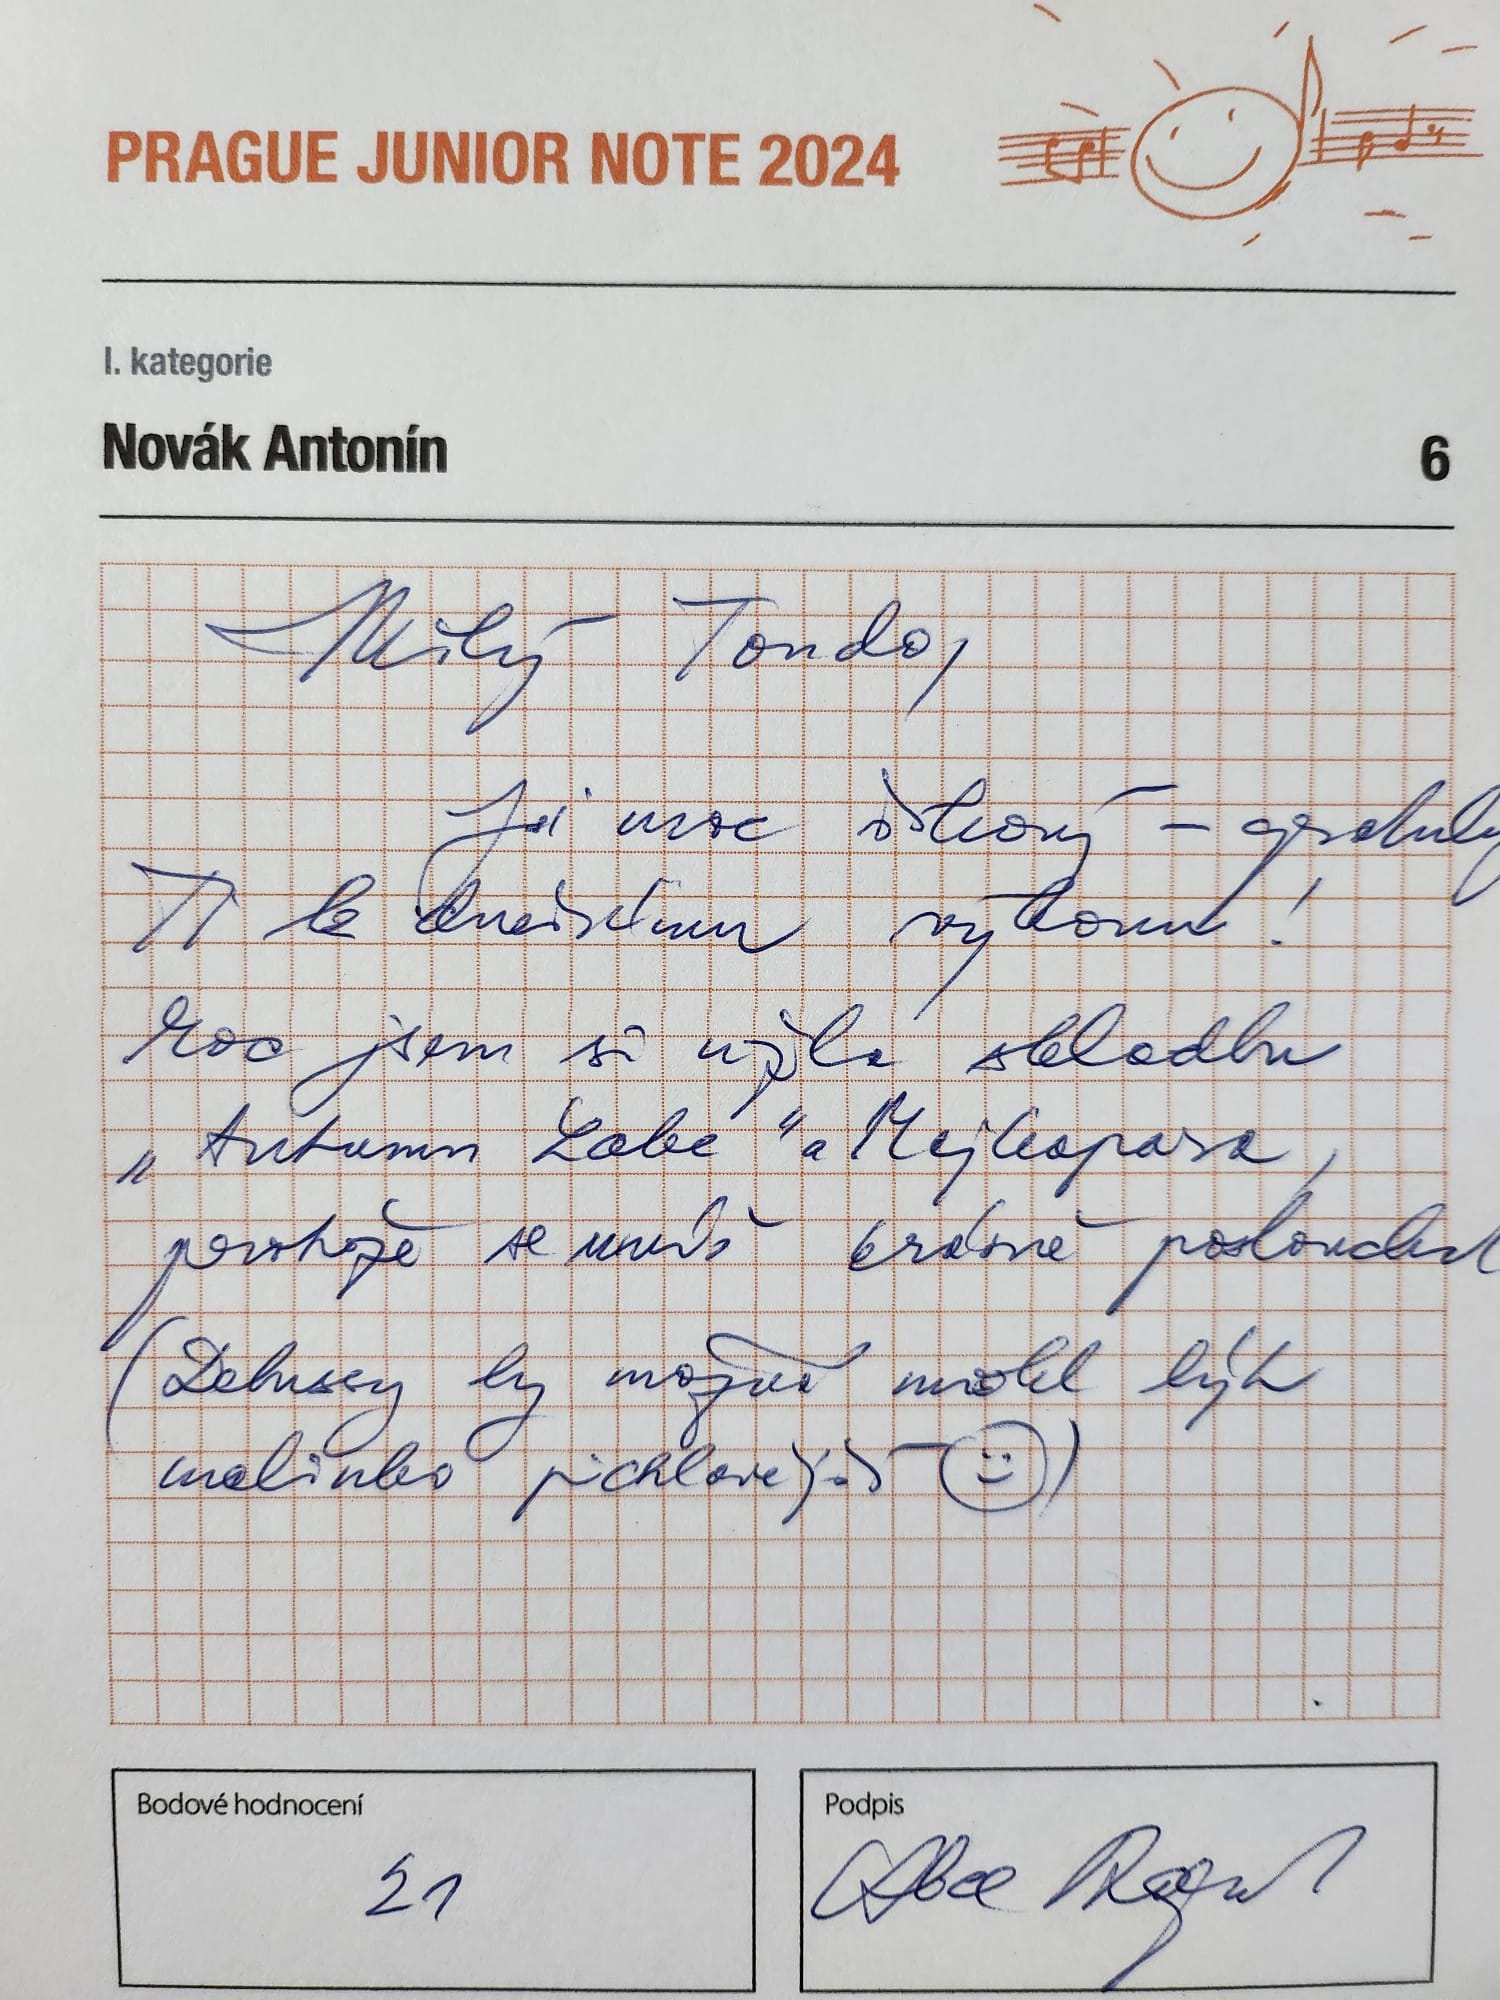 PRAGUE JUNIOR NOTE 2024
I. kategorie
Novák Antonín
6
Milý Tondo,
Jsi moc šikovný – gratuluji
Ti ke dnešnímu výkonu!
Moc jsem si užila skladbu
„Autumn Lake“ a Majkapara,
protože se umíš krásně poslouchat
(Debussy by možná mohl být
malinko pichlavější ☺)
Bodové hodnocení
21
Podpis